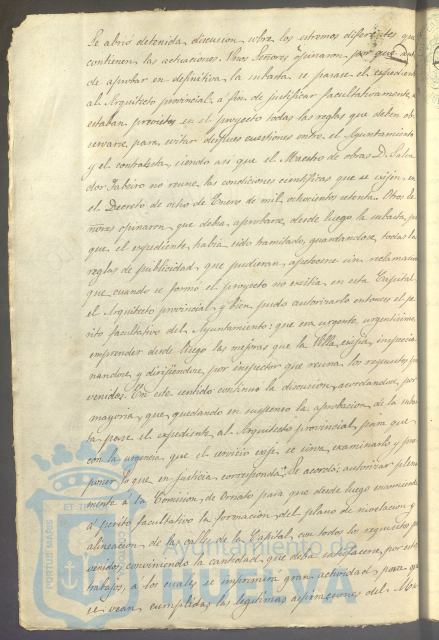 Se abrió detenida discusion sobre los estremos diferentes que
contienen las actuaciones. Unos Señores opinaron, por que antes
de aprobar en definitiva la subasta se pasase el espediente
al Arquitecto provincial, a fin de justificar facultativamente, si
estaban previstas en el proyecto todas las reglas que deben ob
servarse para evitar despues cuestiones entre el Ayuntamiento
y el contratista, siendo asi que el Maestro de obras D. Salva
dor no reune las condiciones cientificas que se exijen en
el Decreto de ocho de Enero de mil ochocientos setenta. Otros Se
ñores opinaron que debia aprobarse desde luego la subasta, por
que el espediente habia sido tramitado, guardandose todas las
reglas de publicidad que pudieran apetecerse sin reclamacion
que cuando se formó el proyecto no existia en esta Capital
el Arquitecto provincial, y bien pudo autorizarlo entonces el pe
rito facultativo del Ayuntamiento: que era urgente, urgentisimo,
emprender desde luego las mejoras que la Villa exijia, inspeccio
nandose y dirijiendose, por inspector que reuna los requisitos pre
venidos. En este sentido continuó la discusion, acordandose, por
mayoria, que, quedando en suspenso la aprobacion de la subas
ta pase el espediente al Arquitecto provincial para que
con la urgencia que el servicio exije se sirva examinarlo y pro
poner lo que en justicia corresponda. Se acordó: autorizar plena
mente á la Comision de Ornato para que desde luego encomiende
al perito facultativo la formacion del plano de nivelacion y
alineacion de las calles de la Capital, con todos los requisitos pre
venidos; conviniendo la cantidad que deba satisfacerse por estos
trabajos, a los cuales se imprimira gran actividad, para que
se vean cumplidas las legitimas aspiraciones del
PORTUS MARIS
ET TERRAE
Ayuntamiento de
HUELVA